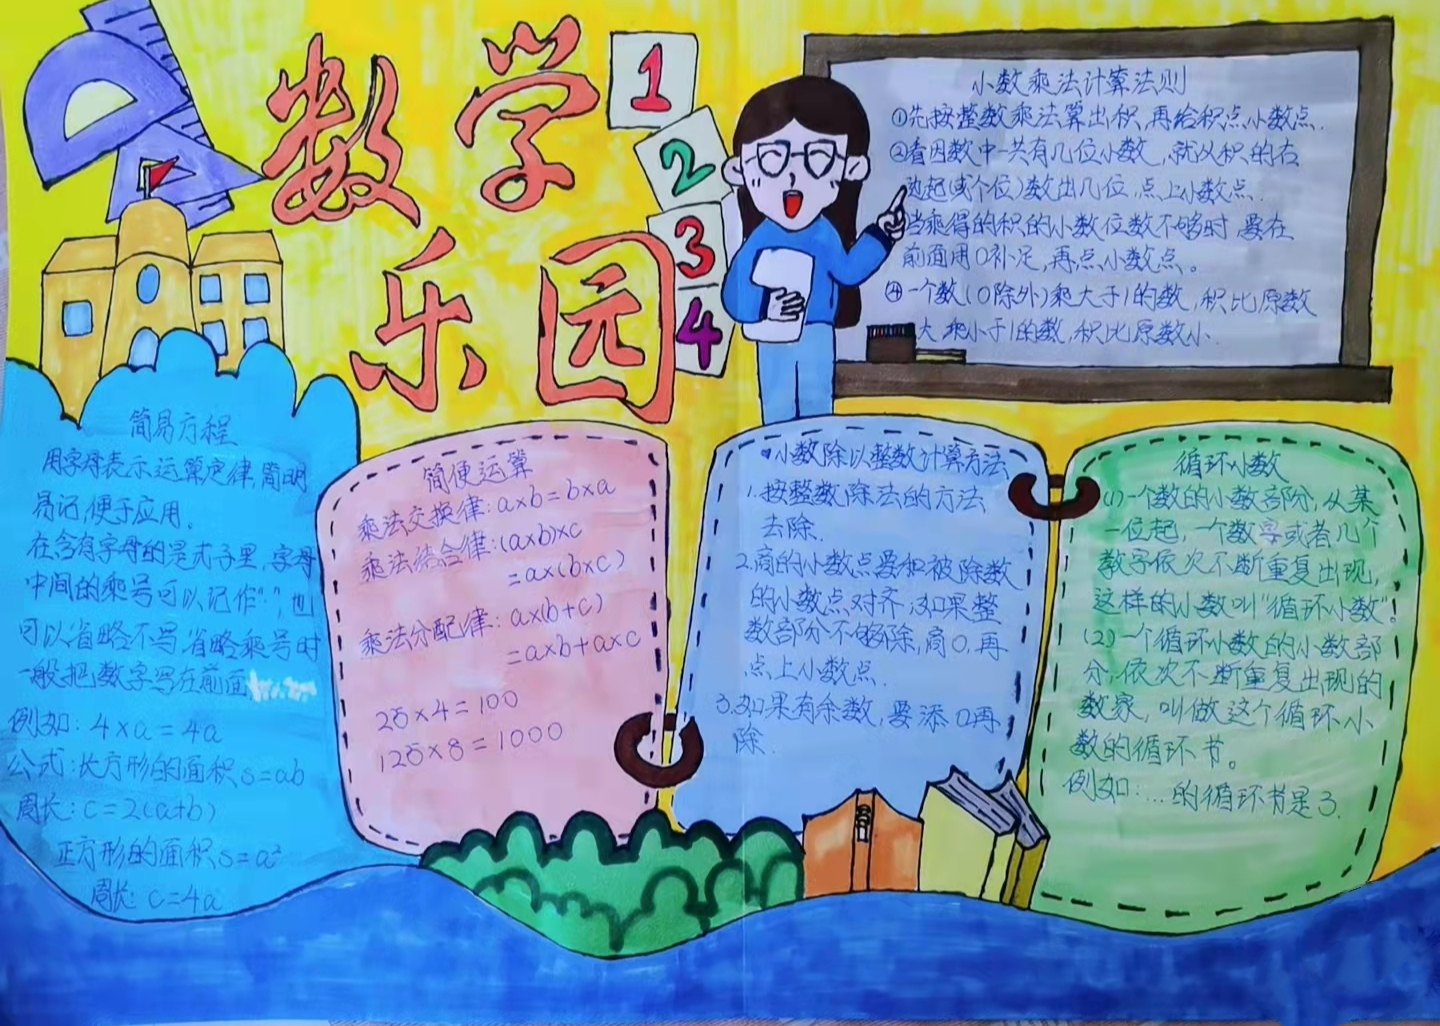 数学
乐园
1
2
3
4
小数乘法计算法则
①先按整数乘法算出积,再给积点小数点.
②看因数中一共有几位小数,就从积的右
边起(或个位)数出几位,点上小数点.
当乘得的积的小数位数不够时 要在
前面用0补足,再点小数点。
④一个数(0除外)乘大于1的数,积比原数
大,乘小于1的数,积比原数小.
简易方程
用字母表示运算定律,简明
易记,便于应用。
在含有字母的是式子里,字母
中间的乘号可以记作“·”,也
可以省略不写,省略乘号时
一般把数字写在前面
例如:4×a=4a
公式:长方形的面积s=ab
周长:c=2(a+b)
正方形的面积s=a²
周长:c=4a
简便运算
乘法交换律:a×b=b×a
乘法结合律:(a×b)×c
=a×(b×c)
乘法分配律:a×(b+c)
=a×b+a×c
25×4=100
125×8=1000
小数除以整数计算方法
1.按整数除法的方法
去除.
2.商的小数点要和被除数
的小数点对齐;如果整
数部分不够除,商0,再
点上小数点.
3.如果有余数,要添0再
除.
循环小数
(1)一个数的小数部分,从某
一位起,一个数字或者几个
数字依次不断重复出现,
这样的小数叫“循环小数”。
(2)一个循环小数的小数部
分,依次不断重复出现的
数家,叫做这个循环小
数的循环节。
例如:…的循环节是3.